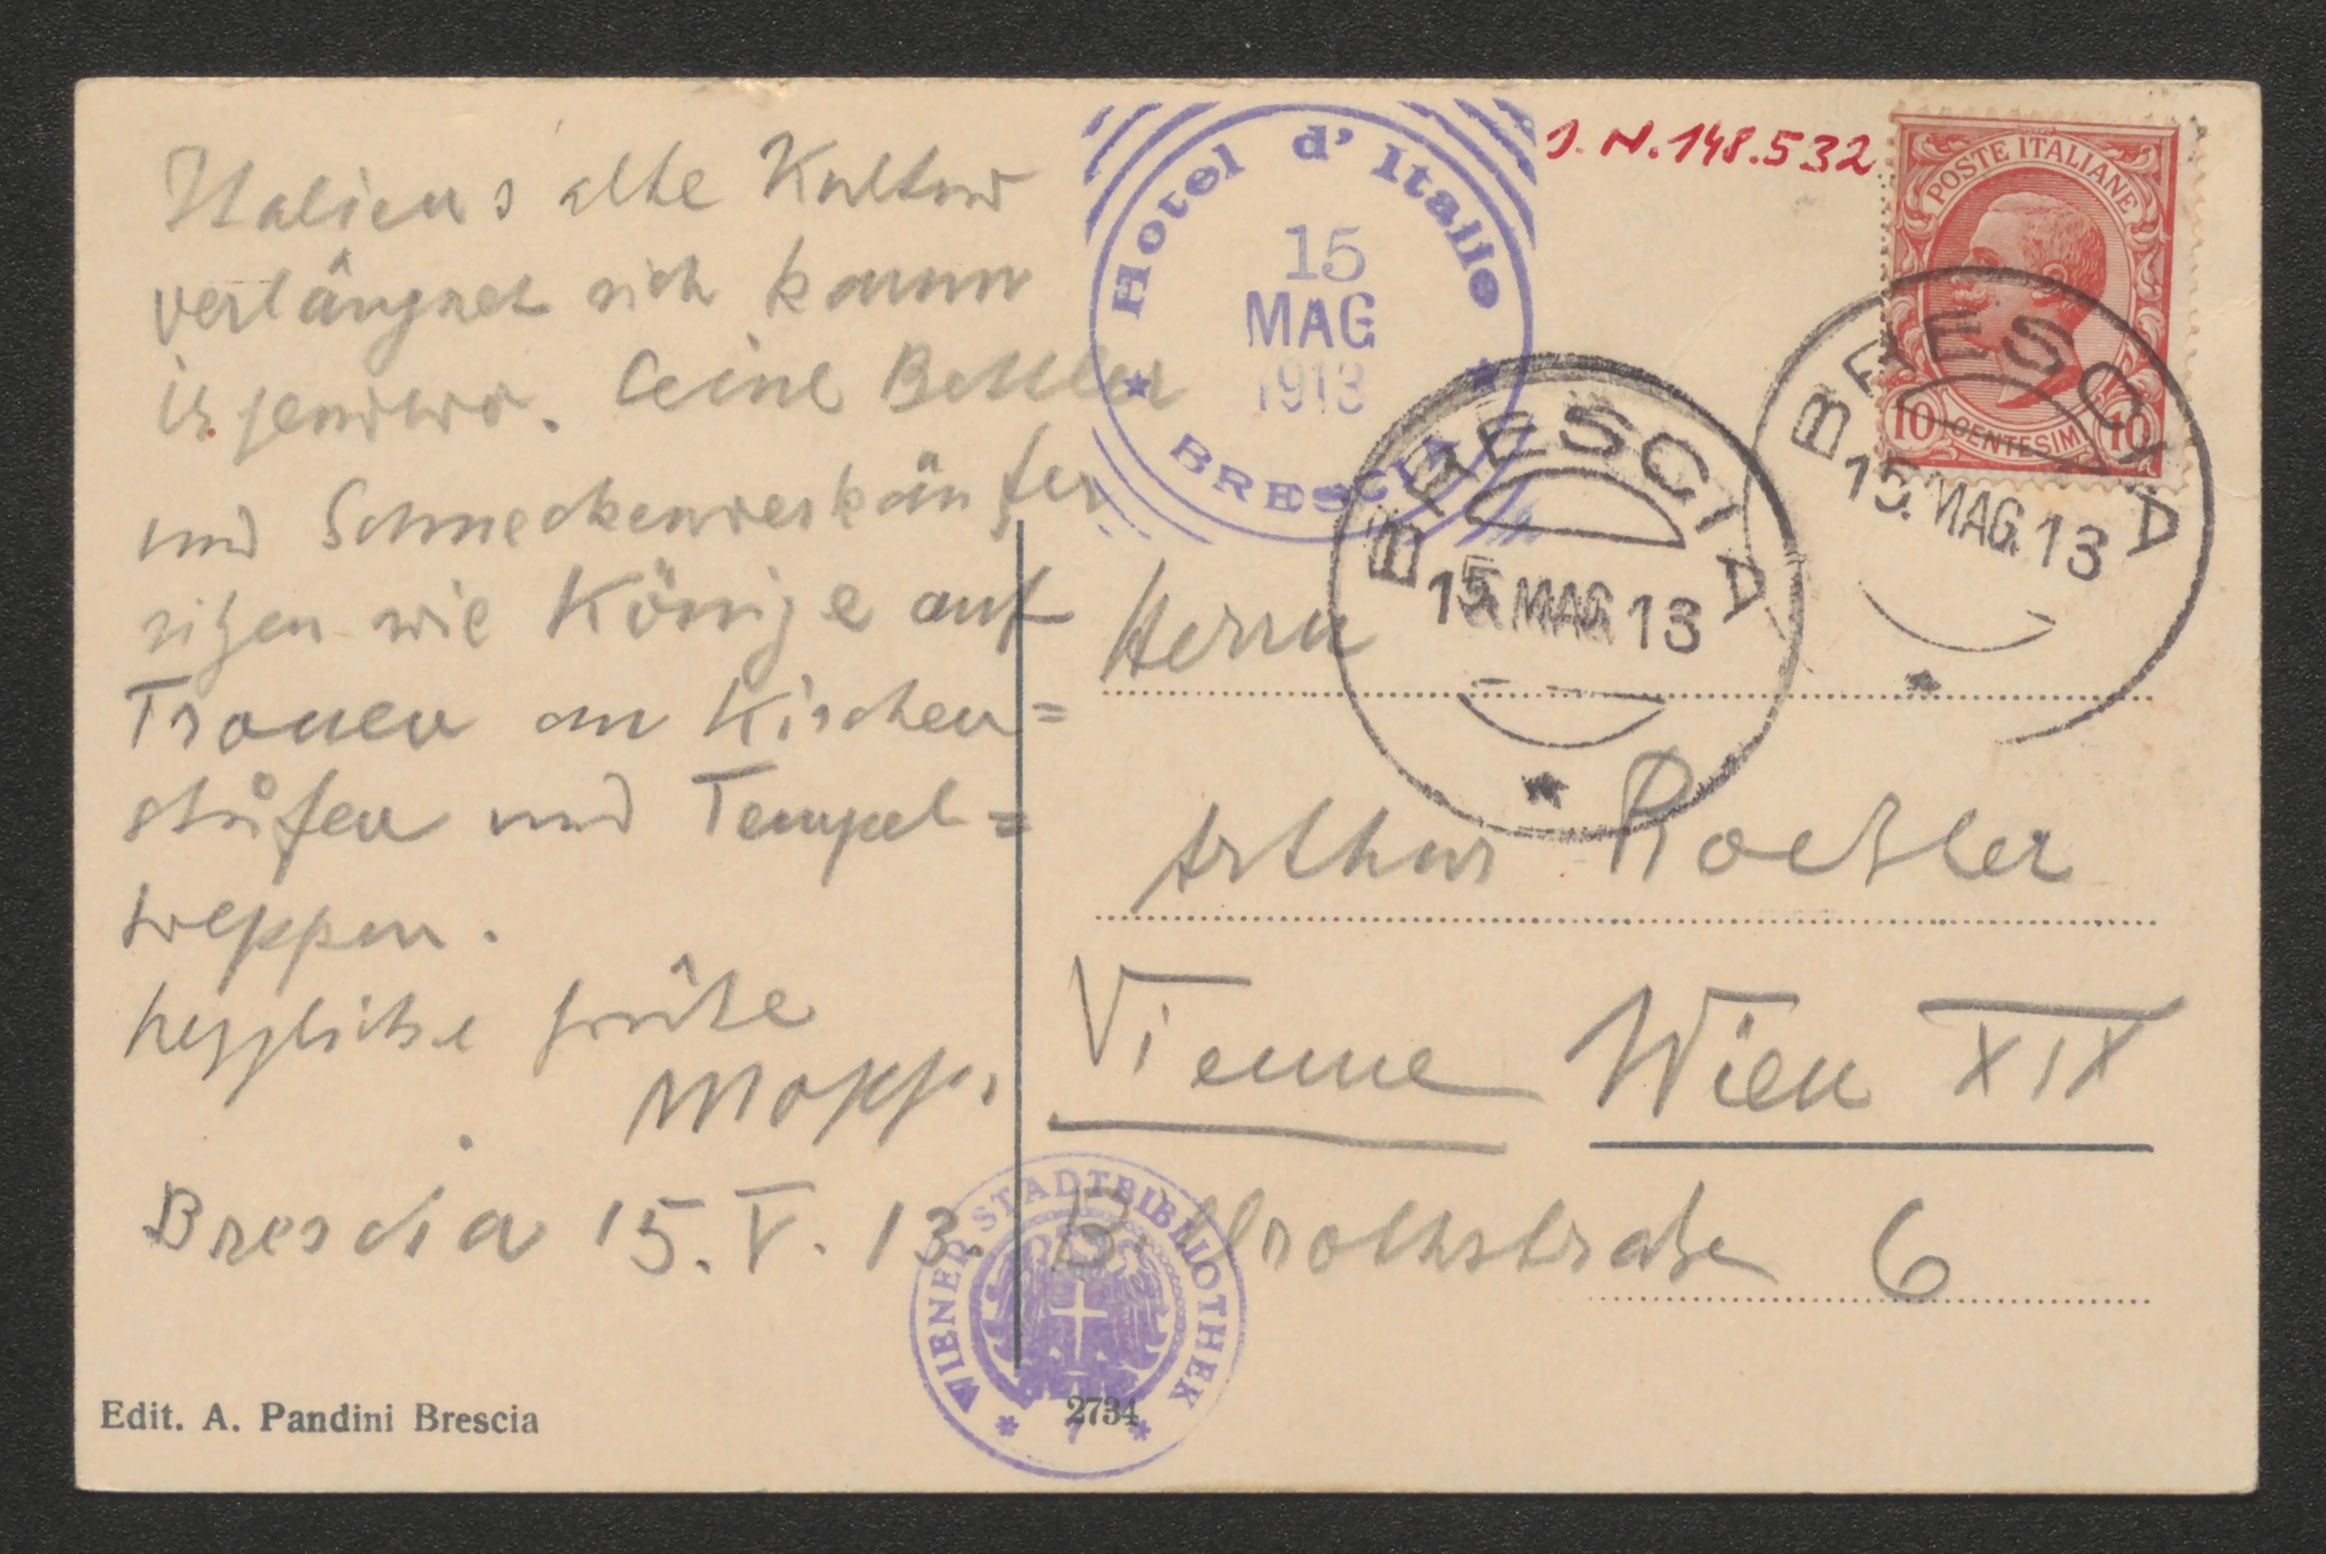 Italiens alte Kultur
verläugnet sich kaum
irgendwo. Seine Bettler
und Schneckenverkäufer
sitzen wie Könige auf
Tronen an Kirchen=
stufen und Tempel=
treppen.
herzliche Grüße
Mopp.
Brescia 15.V.13.
Edit. A. Pandini Brescia
Hotel d'Italie
15
MAG
1913
BRESCIA
J.N.148.532
POSTE ITALIANE
10 CENTESIMI 10
BRESCIA
15.MAG.13
BRESCIA
15.MAG.13
Herrn
Arthur Roeßler
Vienne Wien XIX
Billrothstraße 6
WIENER STADTBIBLIOTHEK
2734
7